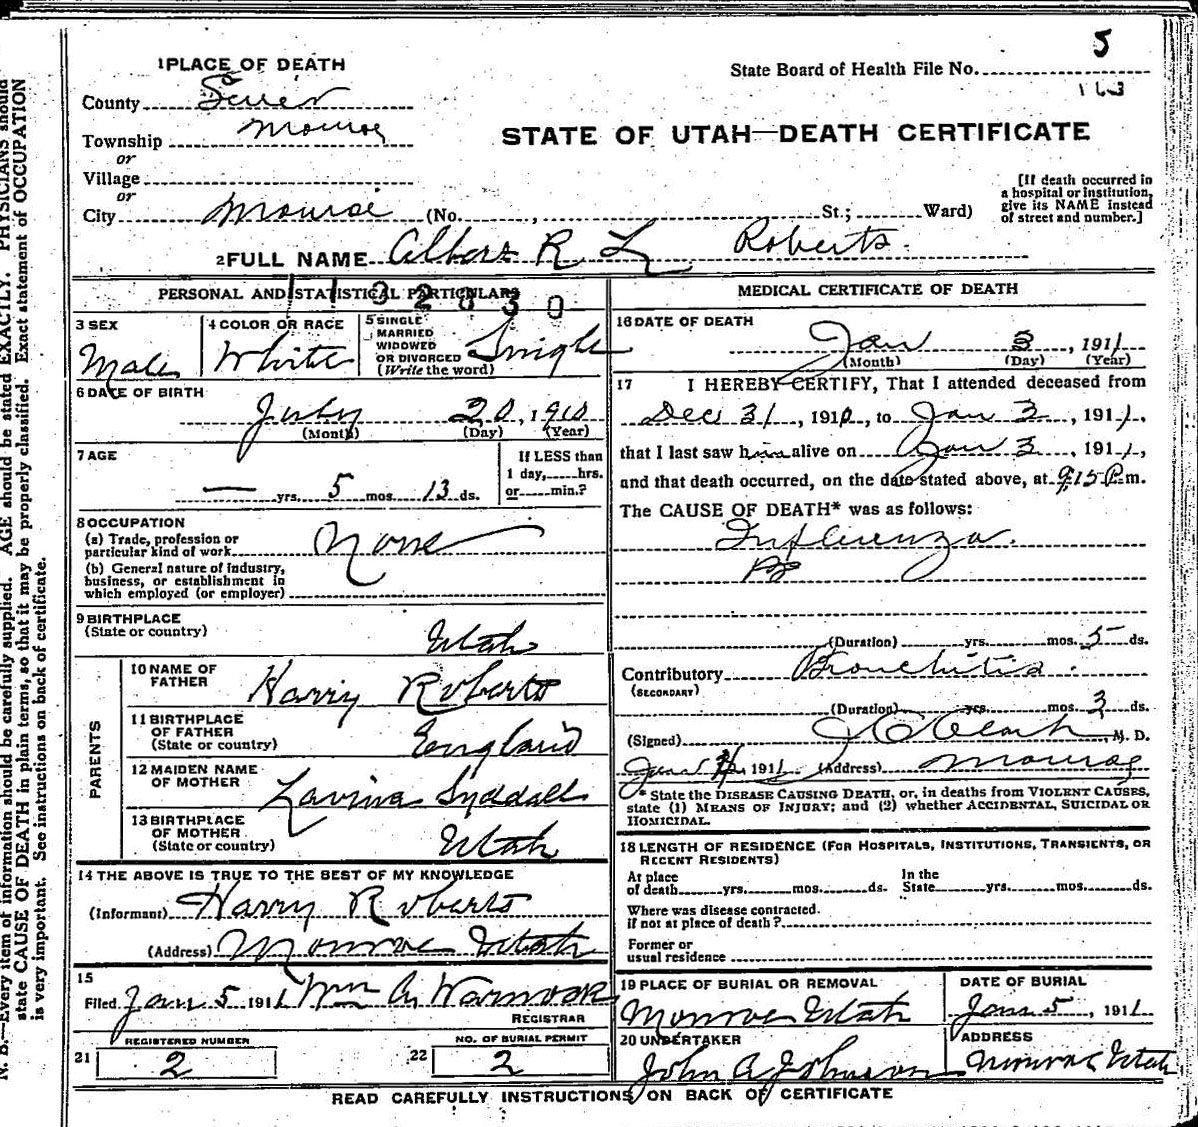 5
State Board of Health File No.
163
1 PLACE OF DEATH
County Sevier
Township Monroe
or
Village
or
City Monroe (No. , St.; Ward)
STATE OF UTAH—DEATH CERTIFICATE
[If death occurred in
a hospital or institution,
give its NAME instead
of street and number.]
2 FULL NAME Albert R L Roberts.
PERSONAL AND STATISTICAL PARTICULARS
3 SEX
Male
4 COLOR OR RACE
White
5 SINGLE
MARRIED
WIDOWED
OR DIVORCED
(Write the word)
Single
6 DATE OF BIRTH
July 20, 1910
(Month) (Day) (Year)
7 AGE
— yrs. 5 mos. 13 ds.
If LESS than
1 day, hrs.
or min.?
8 OCCUPATION
(a) Trade, profession or
particular kind of work None
(b) General nature of industry,
business, or establishment in
which employed (or employer)
9 BIRTHPLACE
(State or country)
Utah
PARENTS
10 NAME OF
FATHER
Harry Roberts
11 BIRTHPLACE
OF FATHER
(State or country)
England
12 MAIDEN NAME
OF MOTHER
Lavina Syddall
13 BIRTHPLACE
OF MOTHER
(State or country)
Utah
14 THE ABOVE IS TRUE TO THE BEST OF MY KNOWLEDGE
(Informant) Harry Roberts
(Address) Monroe Utah
15
Filed Jan 5 1911 Wm A Warnock
REGISTRAR
21 REGISTERED NUMBER
2
22 NO. OF BURIAL PERMIT
2
MEDICAL CERTIFICATE OF DEATH
16 DATE OF DEATH
Jan 3, 1911
(Month) (Day) (Year)
17 I HEREBY CERTIFY, That I attended deceased from
Dec 31, 1910, to Jan 3, 1911,
that I last saw him alive on Jan 3, 1911,
and that death occurred, on the date stated above, at 9:15 P.m.
The CAUSE OF DEATH* was as follows:
Influenza.
(Duration) yrs. mos. 5 ds.
Contributory Bronchitis.
(SECONDARY)
(Duration) yrs. mos. 3 ds.
(Signed) Clark, M. D.
Jan 1911 (Address) Monroe
* State the DISEASE CAUSING DEATH, or, in deaths from VIOLENT CAUSES,
state (1) MEANS OF INJURY; and (2) whether ACCIDENTAL, SUICIDAL OR
HOMICIDAL.
18 LENGTH OF RESIDENCE (FOR HOSPITALS, INSTITUTIONS, TRANSIENTS, OR
RECENT RESIDENTS)
At place
of death yrs. mos. ds.
In the
State yrs. mos. ds.
Where was disease contracted.
if not at place of death?
Former or
usual residence
19 PLACE OF BURIAL OR REMOVAL
Monroe Utah
DATE OF BURIAL
Jan 5, 1911
20 UNDERTAKER
John A Johnson
ADDRESS
Monroe Utah
READ CAREFULLY INSTRUCTIONS ON BACK OF CERTIFICATE
N. B.—Every item of information should be carefully supplied. AGE should be stated EXACTLY. PHYSICIANS should
state CAUSE OF DEATH in plain terms, so that it may be properly classified. Exact statement of OCCUPATION
is very important. See instructions on back of certificate.